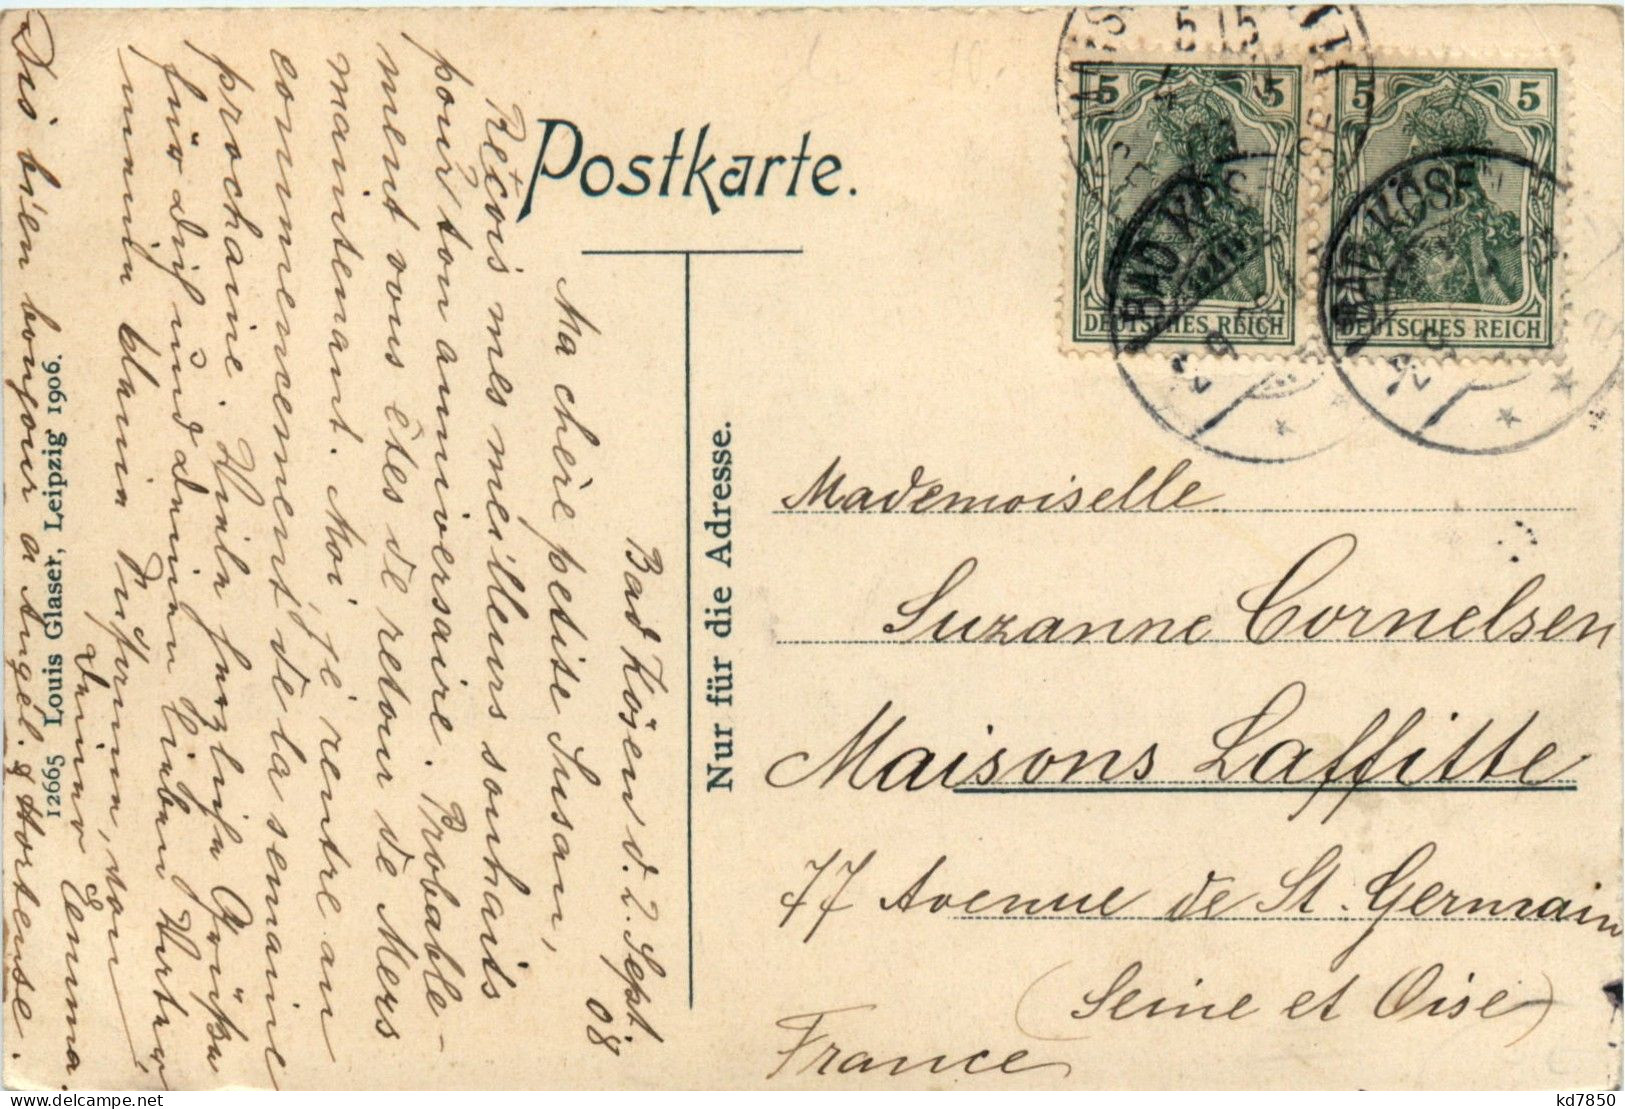 Postkarte.
5 5
DEUTSCHES REICH
5 5
DEUTSCHES REICH
BAD KÖSEN
BAD KÖSEN
Nur für die Adresse.
Mademoiselle
Suzanne Cornelsen
Maisons Laffitte
77 Avenue de St. Germain
(Seine et Oise)
France
Bad Kösen d. 2. Sept.
08
Ma chère petite Susan,
Reçois mes meilleurs souhaits
pour ton anniversaire. Probable-
ment vous êtes de retour de Mers
maintenant. Moi je rentre au
commencement de la semaine
prochaine. Viele herzliche Grüße
für dich und deinen lieben
mein von
deiner Emma.
Dis bien bonjour a Angèl. & Hortense.
12665 Louis Glaser, Leipzig 1906.
kd7850